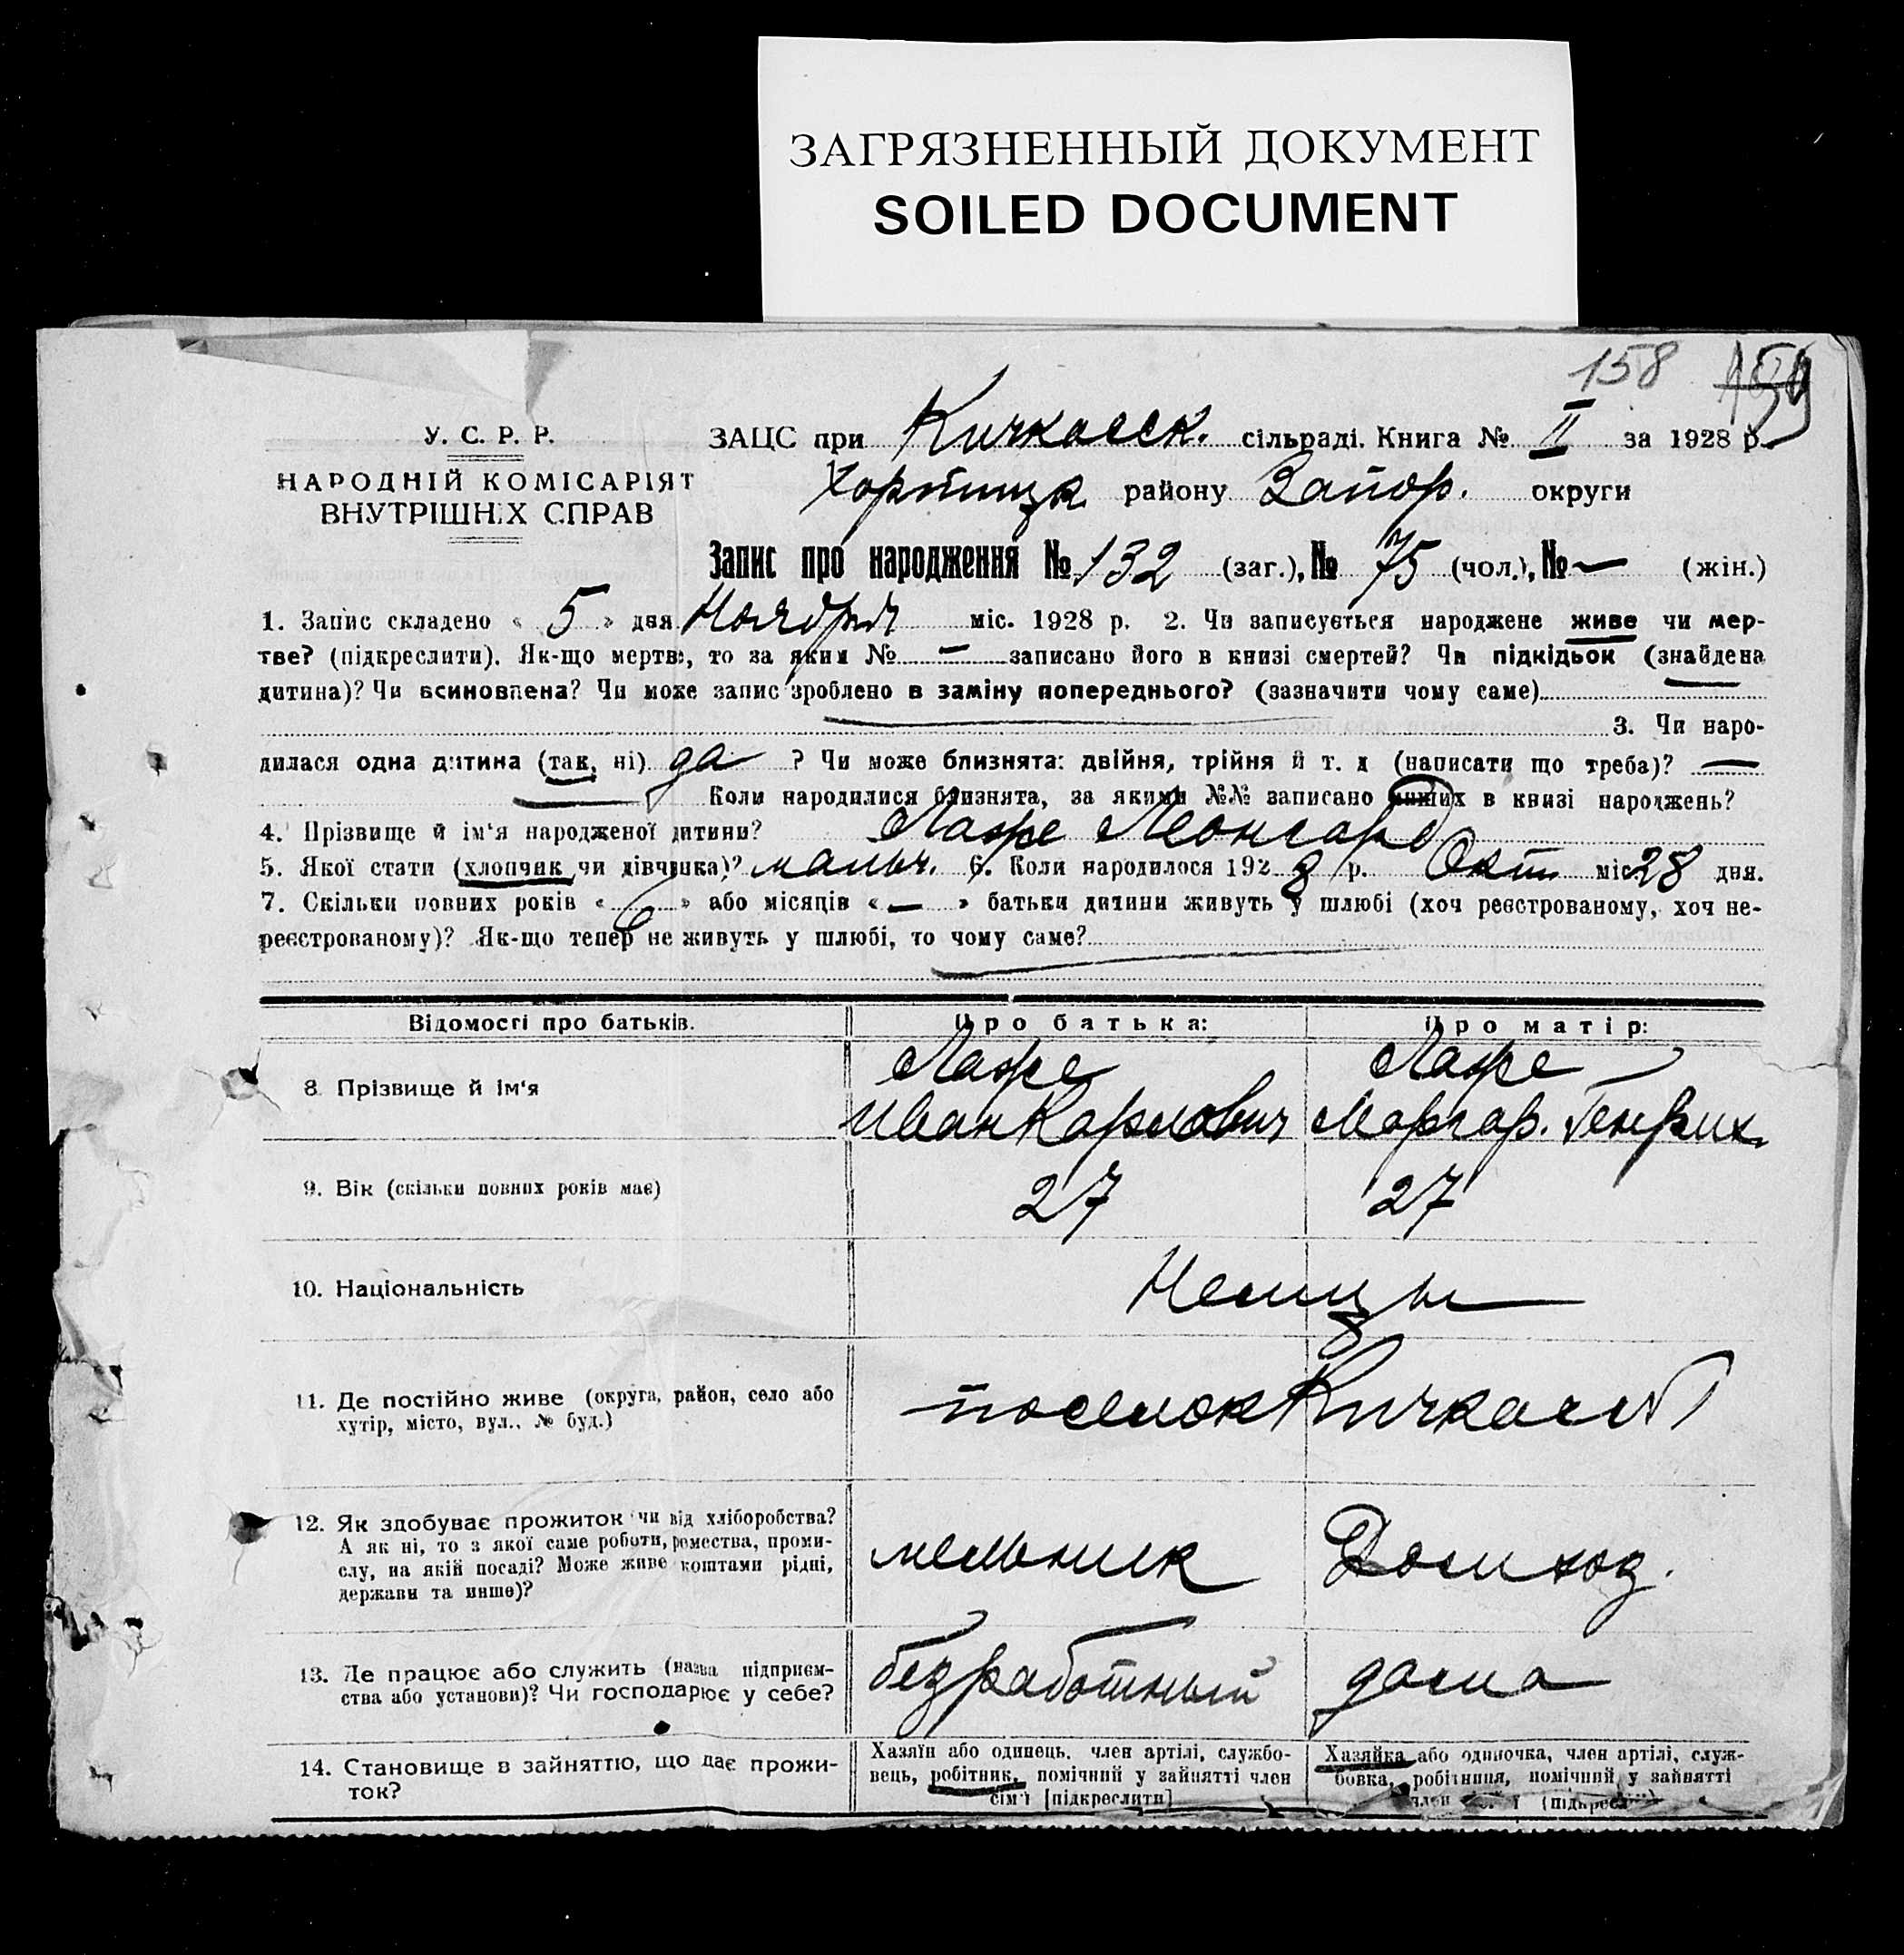 ЗАГРЯЗНЕННЫЙ ДОКУМЕНТ
SOILED DOCUMENT
158 159
У. С. Р. Р.
НАРОДНІЙ КОМІСАРІЯТ
ВНУТРІШНІХ СПРАВ
ЗАЦС при Кичкасск. сільраді. Книга № II за 1928 р.
Хортицк району Запор. округи
Запис про народження № 132 (заг.), № 75 (чол.), № — (жін.)
1. Запис складено « 5 » дня Ноября міс. 1928 р. 2. Чи записується народжене живе чи мер-
тве? (підкреслити). Як-що мертве, то за яким № — записано його в книзі смертей? Чи підкідьок (знайдена
дитина)? Чи всиновлена? Чи може запис зроблено в заміну попереднього? (зазначити чому саме)
3. Чи наро-
дилася одна дитина (так, ні) да ? Чи може близнята: двійня, трійня й т. д (написати що треба)? —
Коли народилися близнята, за якими №№ записано инших в книзі народжень?
4. Прізвище й ім'я народженої дитини? Лафе Леонгард
5. Якої стати (хлопчик чи дівчинка)? мальч. 6. Коли народилося 1928 р. Окт. міс 28 дня.
7. Скільки повних років « 6 » або місяців « — » батьки дитини живуть у шлюбі (хоч реєстрованому, хоч не-
реєстрованому)? Як-що тепер не живуть у шлюбі, то чому саме?
Відомості про батьків. Про батька: Про матір:
8. Прізвище й ім'я Лафе Иван Карлович Лафе Маргар. Генрих.
9. Вік (скільки повних років має) 27 27
10. Національність Немцы
11. Де постійно живе (округа, район, село або
хутір, місто, вул., № буд.) поселок Кичкасс
12. Як здобуває прожиток чи від хліборобства?
А як ні, то з якої саме роботи, ремества, проми-
слу, на якій посаді? Може живе коштами рідні,
держави та инше)? мельник Домхоз.
13. Де працює або служить (назва підприєм-
ства або установи)? Чи господарює у себе? безработный дома
14. Становище в зайняттю, що дає прожи-
ток?
Хазяїн або одинець, член артілі, службо-
вець, робітник, помічний у зайнятті член
сім'ї [підкреслити]
Хазяйка або одиночка, член артілі, служ-
бовка, робітниця, помічний у зайнятті
член